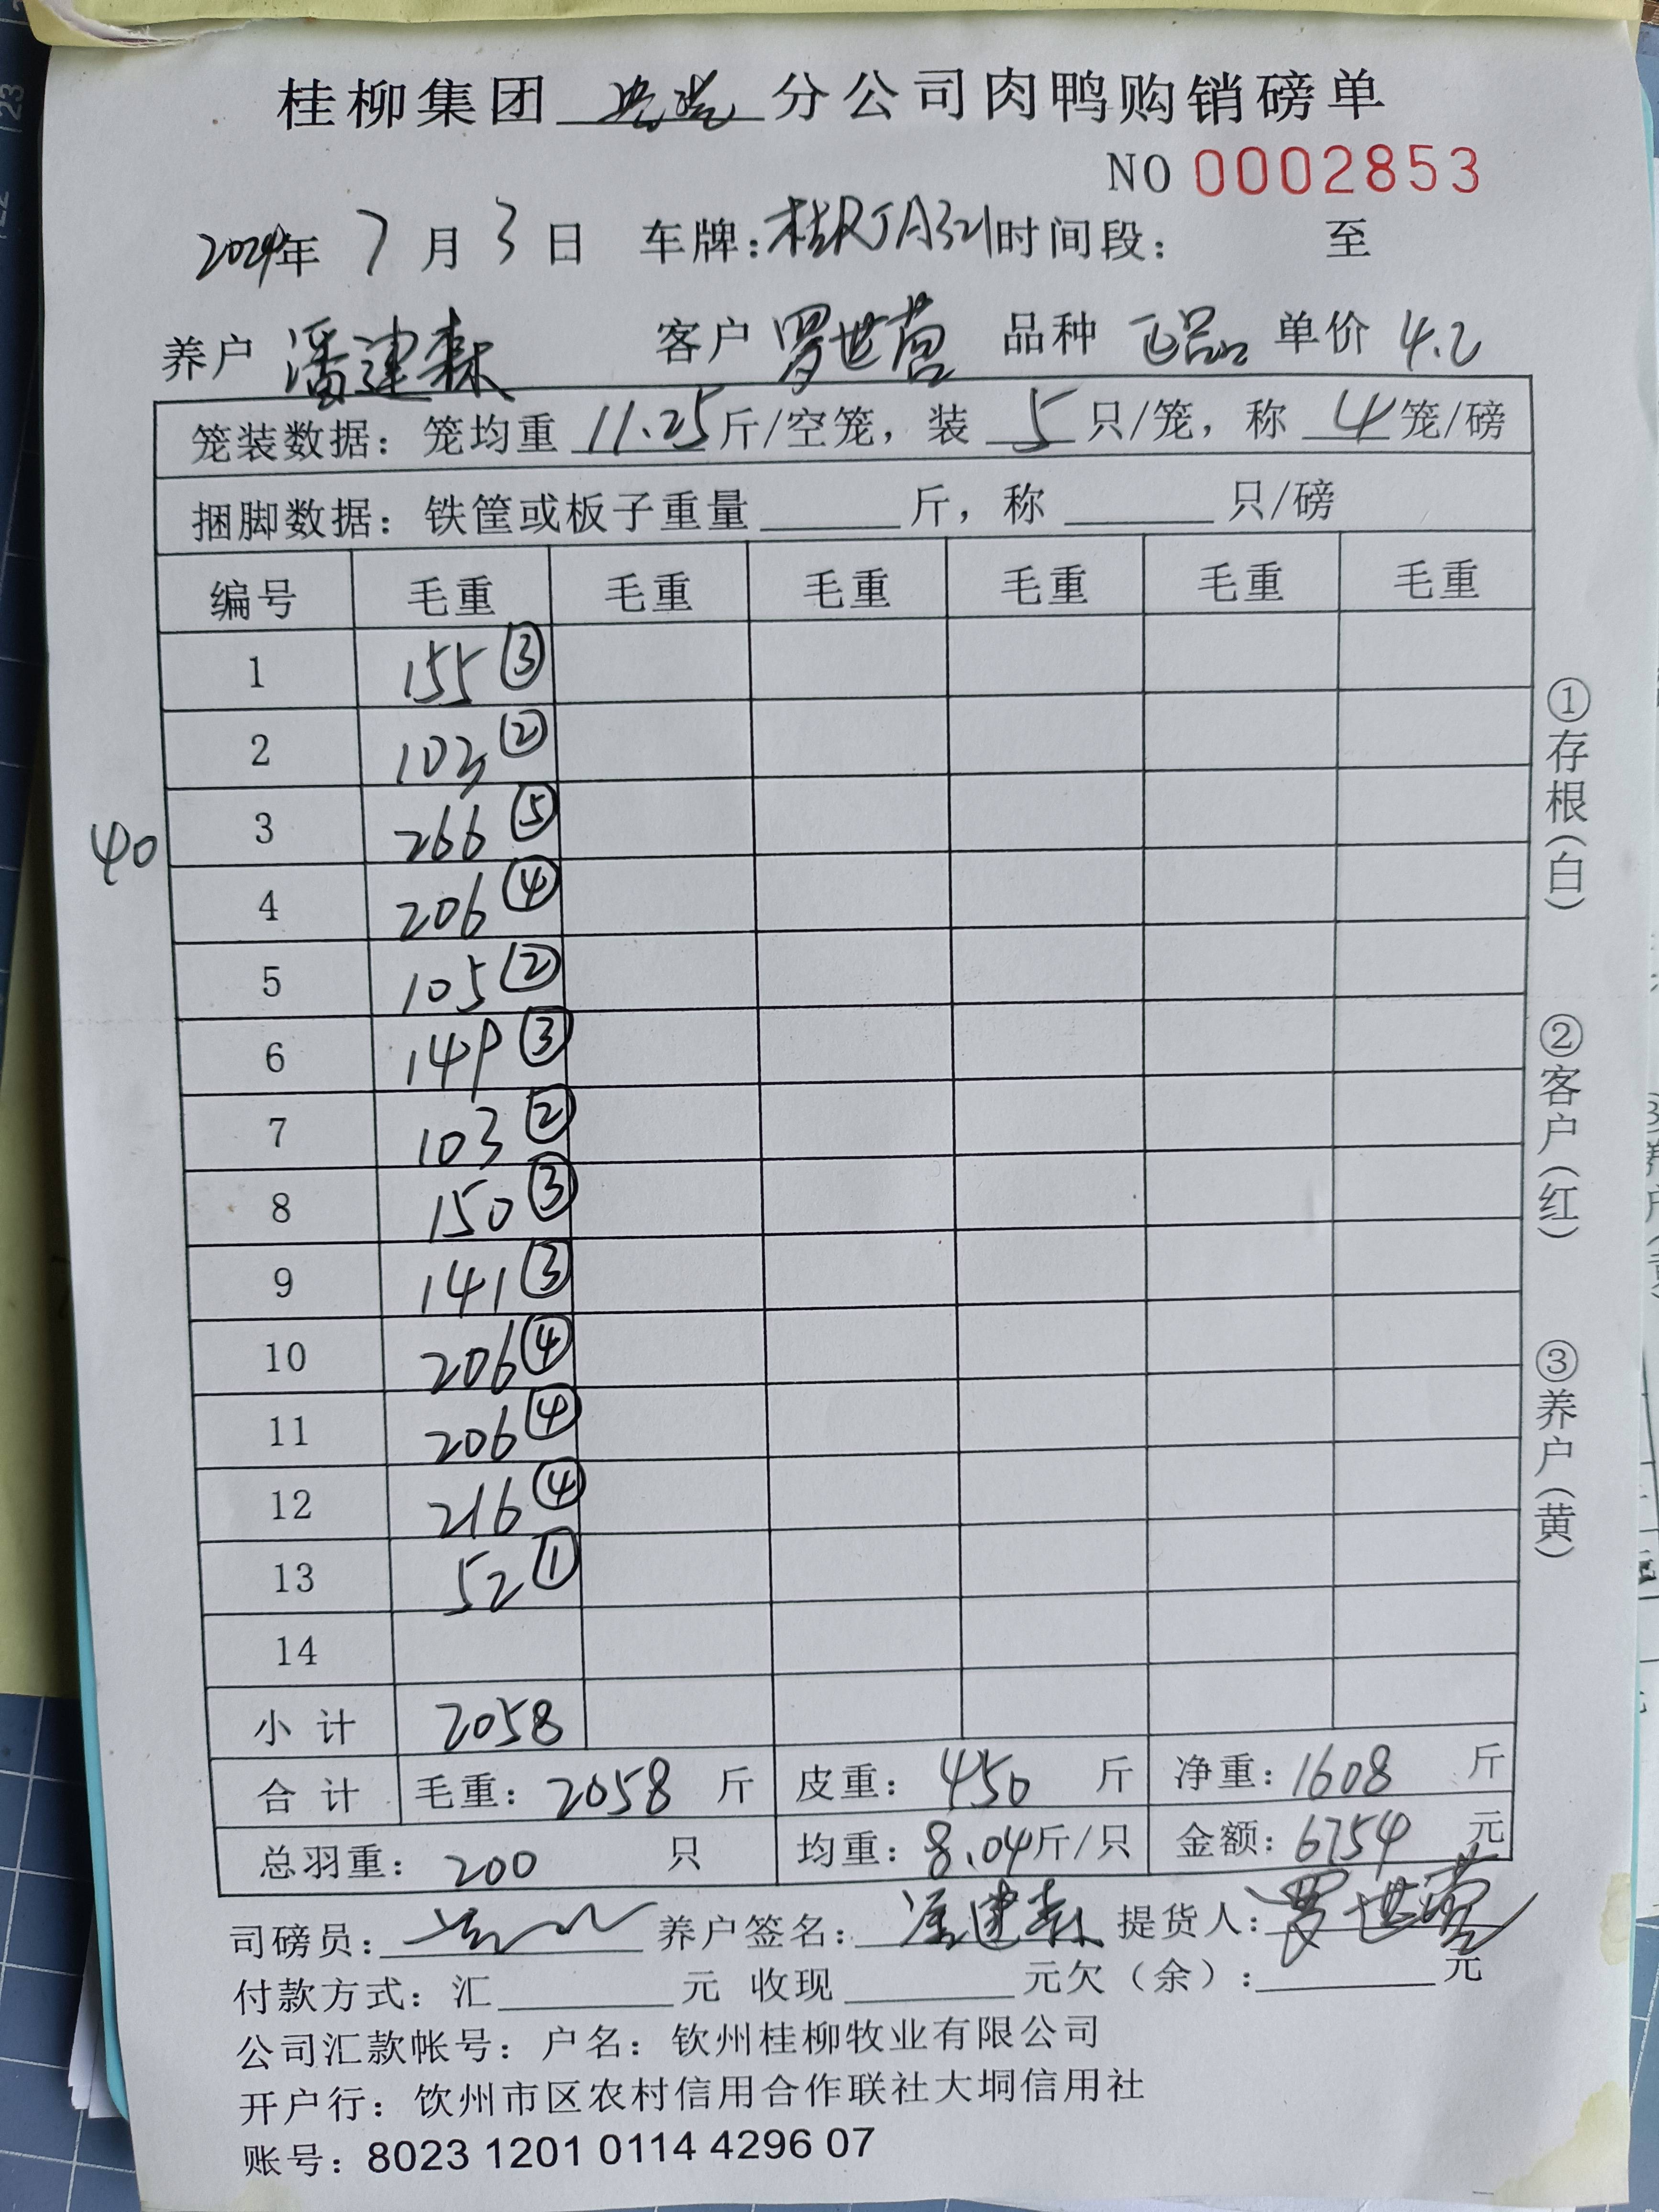 桂柳集团 分公司肉鸭购销磅单
NO 0002853
2024年 7 月 3 日 车牌：桂RJA321 时间段： 至
养户 潘建森 客户 罗世营 品种 正品 单价 4.2
笼装数据：笼均重 11.25 斤/空笼，装 5 只/笼，称 4 笼/磅
捆脚数据：铁筐或板子重量 斤，称 只/磅
编号 毛重 毛重 毛重 毛重 毛重 毛重
1 155 ③
2 103 ②
3 266 ⑤
4 206 ④
5 105 ②
6 149 ③
7 103 ②
8 150 ③
9 141 ③
10 206 ④
11 206 ④
12 216 ④
13 52 ①
14
40
小计 2058
合计 毛重：2058 斤 皮重：450 斤 净重：1608 斤
总羽重：200 只 均重：8.04斤/只 金额：6754 元
司磅员： 养户签名：潘建森 提货人：罗世营
付款方式：汇 元 收现 元欠（余）： 元
公司汇款帐号：户名：钦州桂柳牧业有限公司
开户行：饮州市区农村信用合作联社大垌信用社
账号：8023 1201 0114 4296 07
①存根（白）
②客户（红）
③养户（黄）